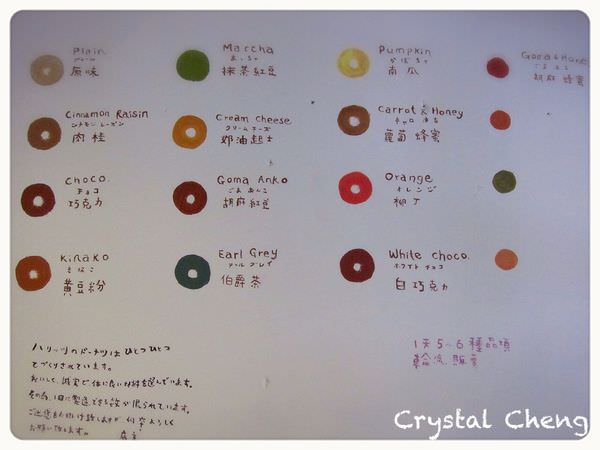 Plain
プレーン
原味
Maccha
まっちゃ
抹茶紅豆
Pumpkin
かぼちゃ
南瓜
Goma & Hone
ごま
胡麻 蜂蜜
Cinnamon Raisin
シナモン レーズン
肉桂
Cream cheese
クリームチーズ
奶油起士
Carrot & Honey
蘿蔔 蜂蜜
Choco.
チョコ
巧克力
Goma Anko
ごま あんこ
胡麻紅豆
Orange
オレンジ
柳丁
Kinako
きなこ
黃豆粉
Earl Grey
アールグレイ
伯爵茶
White choco.
ホワイト チョコ
白巧克力
ハリッツのドーナツはひとつひとつ
てづくりされています。
おいしく、誠実で体に良い材料を選んでいます。
その為、1日に製造できる数が限られています。
ご迷惑をお掛け致しますが、何卒よろしく
お願い致します。
店主
1天5~6種品項
輪流販賣
Crystal Cheng